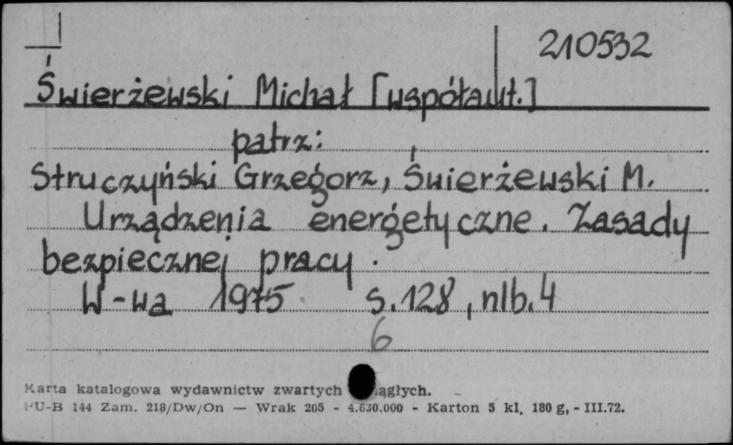 210532
Świerżewski Michał [współaut.]
patrz:
Struczyński Grzegorz, Świerżewski M.
Urządzenia energetyczne. Zasady
bezpiecznej pracy.
W-wa 1975 s. 128, nlb. 4
6
Karta katalogowa wydawnictw zwartych ągłych.
PU-B 144 Zam. 218/Dw/On — Wrak 205 - 4.630.000 - Karton 5 kl. 180 g, - III.72.